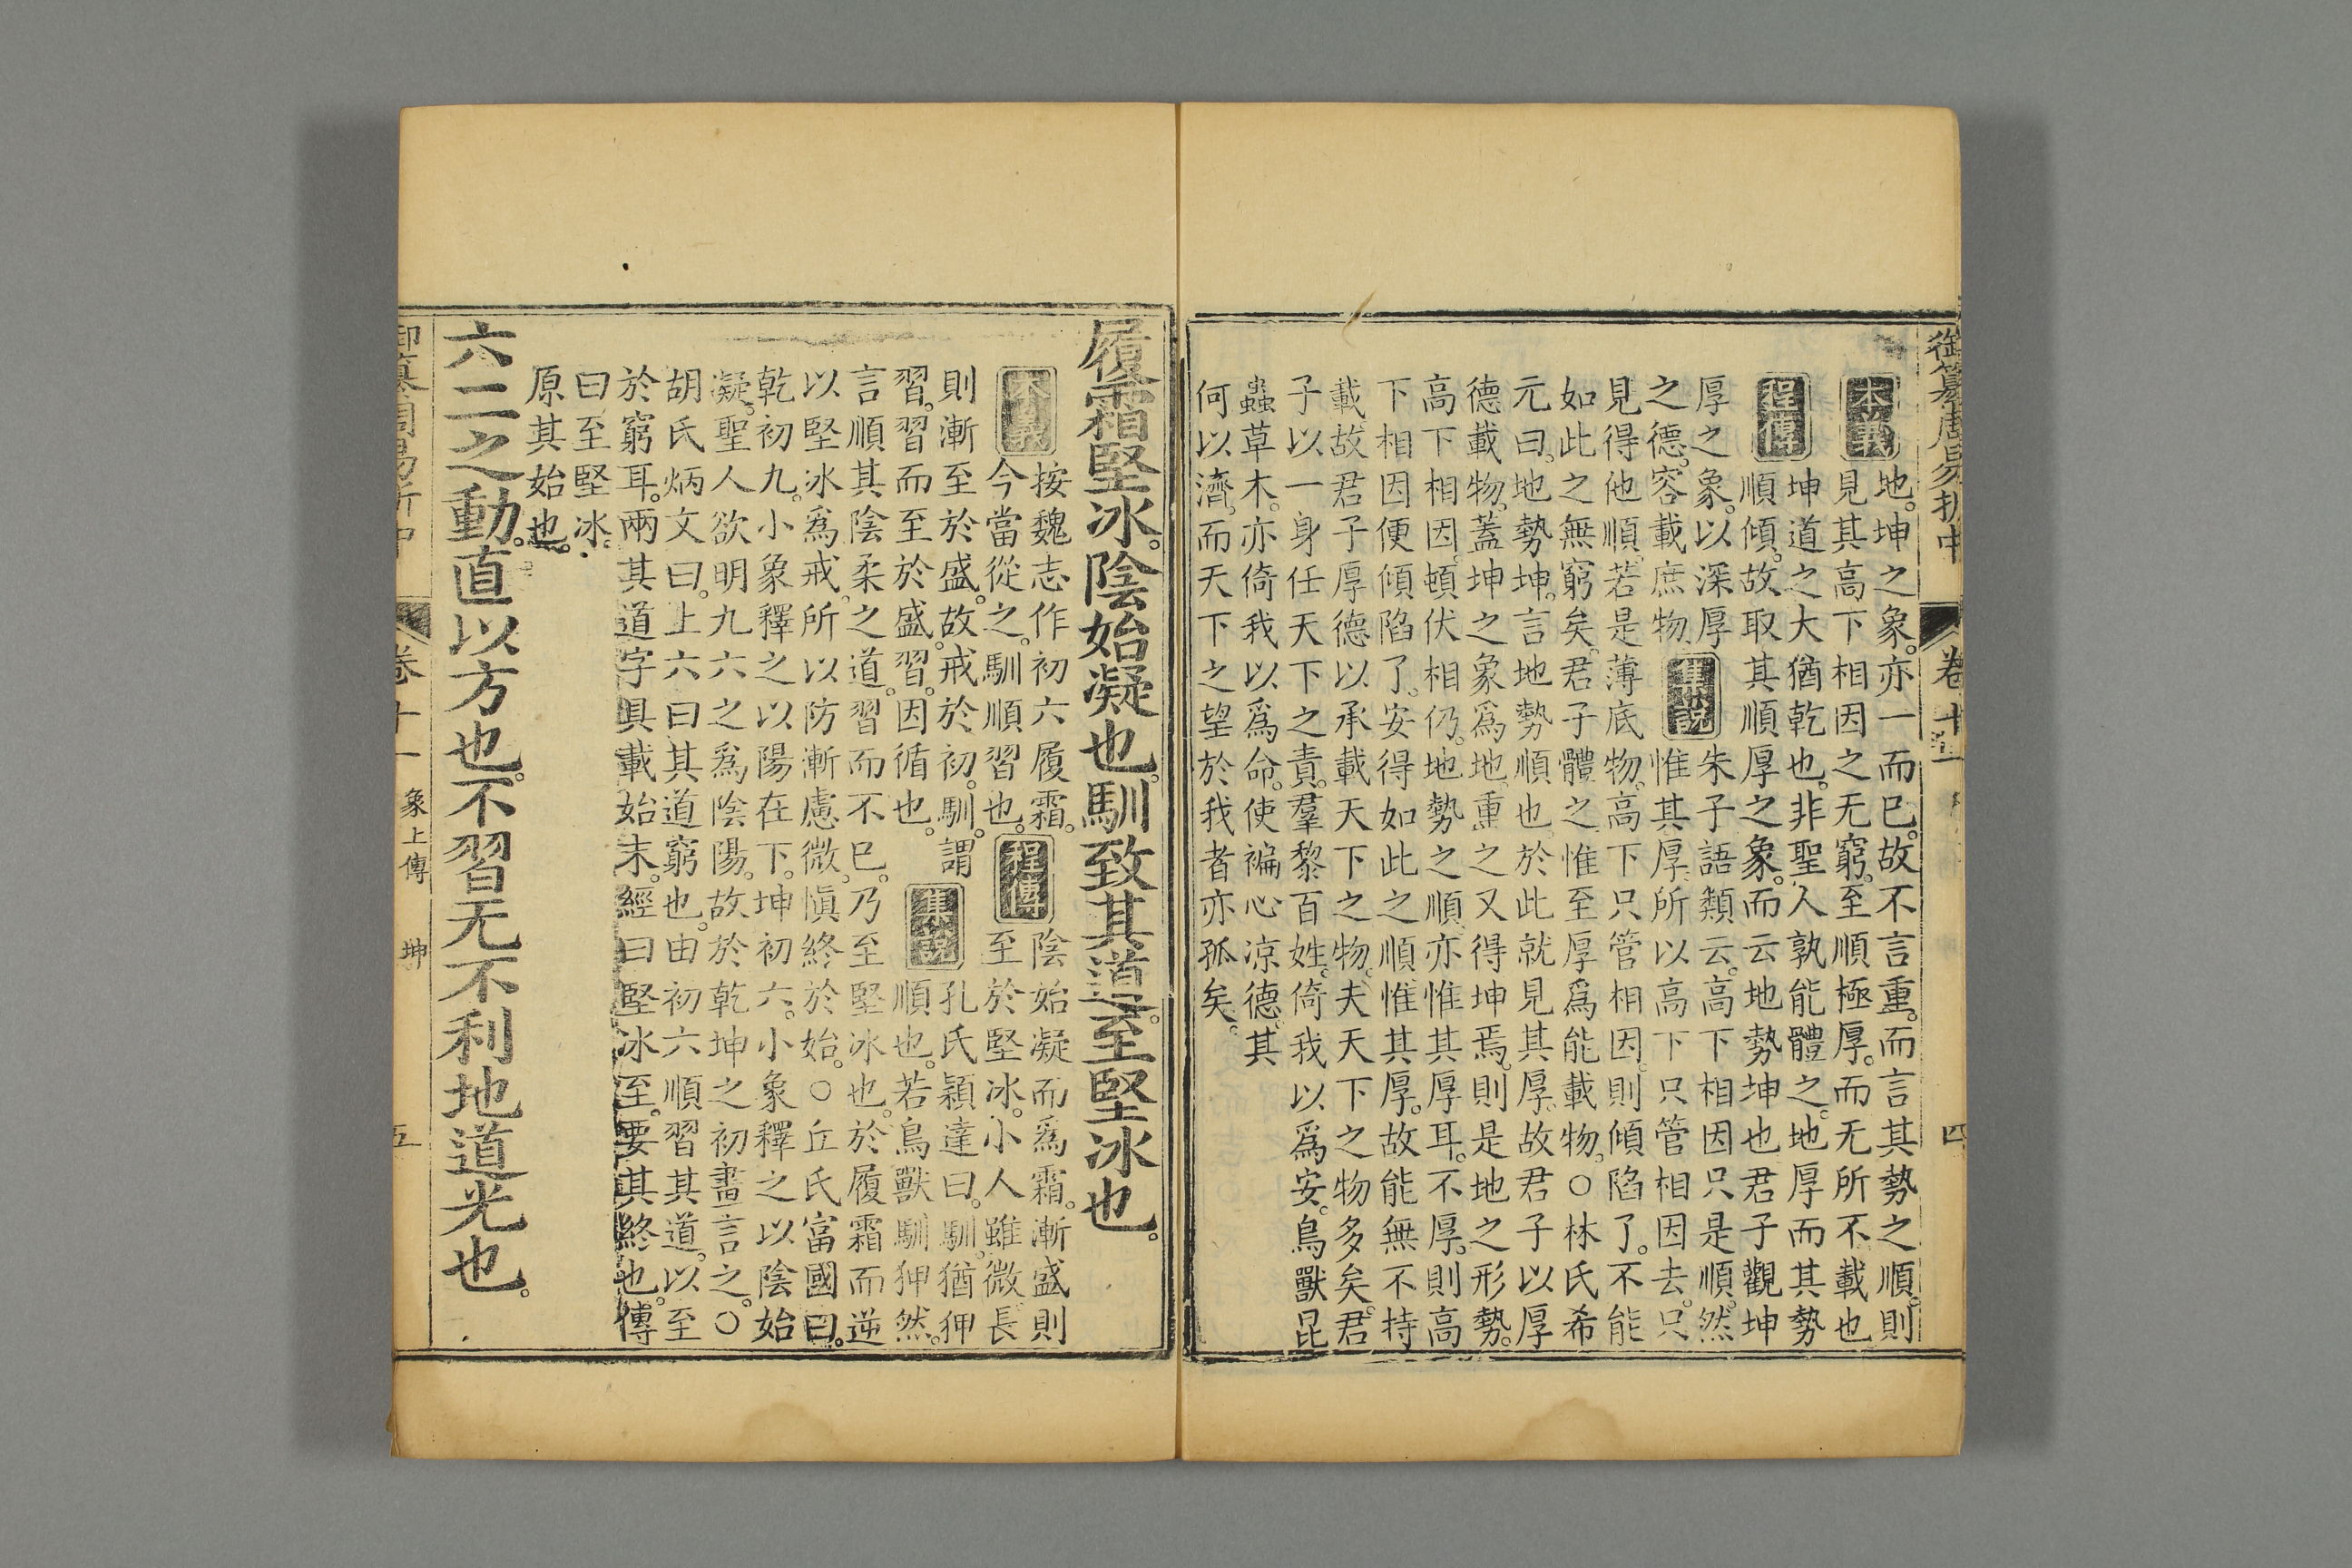 御纂周易折中 卷十一 四
本義 地。坤之象。亦一而已。故不言重。而言其勢之順。則
見其高下相因之无窮。至順極厚。而无所不載也
程傳 坤道之大猶乾也。非聖人孰能體之。地厚而其勢
順傾。故取其順厚之象。而云地勢坤也君子觀坤
厚之象。以深厚
之德。容載庶物。
集說 朱子語類云。高下相因只是順。然
惟其厚。所以高下只管相因去。只
見得他順。若是薄底物。高下只管相因。則傾陷了。不能
如此之無窮矣。君子體之惟至厚爲能載物。○林氏希
元曰。地勢坤。言地勢順也於此就見其厚。故君子以厚
德載物。蓋坤之象爲地。重之又得坤焉。則是地之形勢。
高下相因。頓伏相仍。地勢之順。亦惟其厚耳。不厚。則高
下相因便傾陷了。安得如此之順。惟其厚。故能無不持
載故君子厚德以承載天下之物。夫天下之物多矣。君
子以一身任天下之責。羣黎百姓。倚我以爲安。鳥獸昆
蟲草木。亦倚我以爲命。使褊心涼德。其
何以濟。而天下之望於我者亦孤矣。
履霜堅冰。陰始凝也。馴致其道。至堅冰也。
本義 按魏志作初六履霜。
今當從之。馴順習也。
程傳 陰始凝而爲霜。漸盛則
至於堅冰。小人雖微長
則漸至於盛。故戒於初。馴。謂
習。習而至於盛。習。因循也。
集說 孔氏穎達曰。馴。猶狎
順也。若鳥獸馴狎然。
言順其陰柔之道。習而不已。乃至堅冰也。於履霜而逆
以堅冰爲戒。所以防漸慮微。愼終於始。○丘氏富國曰。
乾初九。小象釋之以陽在下。坤初六。小象釋之以陰始
凝。聖人欲明九六之爲陰陽。故於乾坤之初畫言之。○
胡氏炳文曰。上六曰其道窮也。由初六順習其道。以至
於窮耳。兩其道字具載始末。經曰堅冰至。要其終也。傳
曰至堅冰。
原其始也。
六二之動。直以方也。不習无不利地道光也。
御纂周易折中 卷十一 象上傳 坤 五